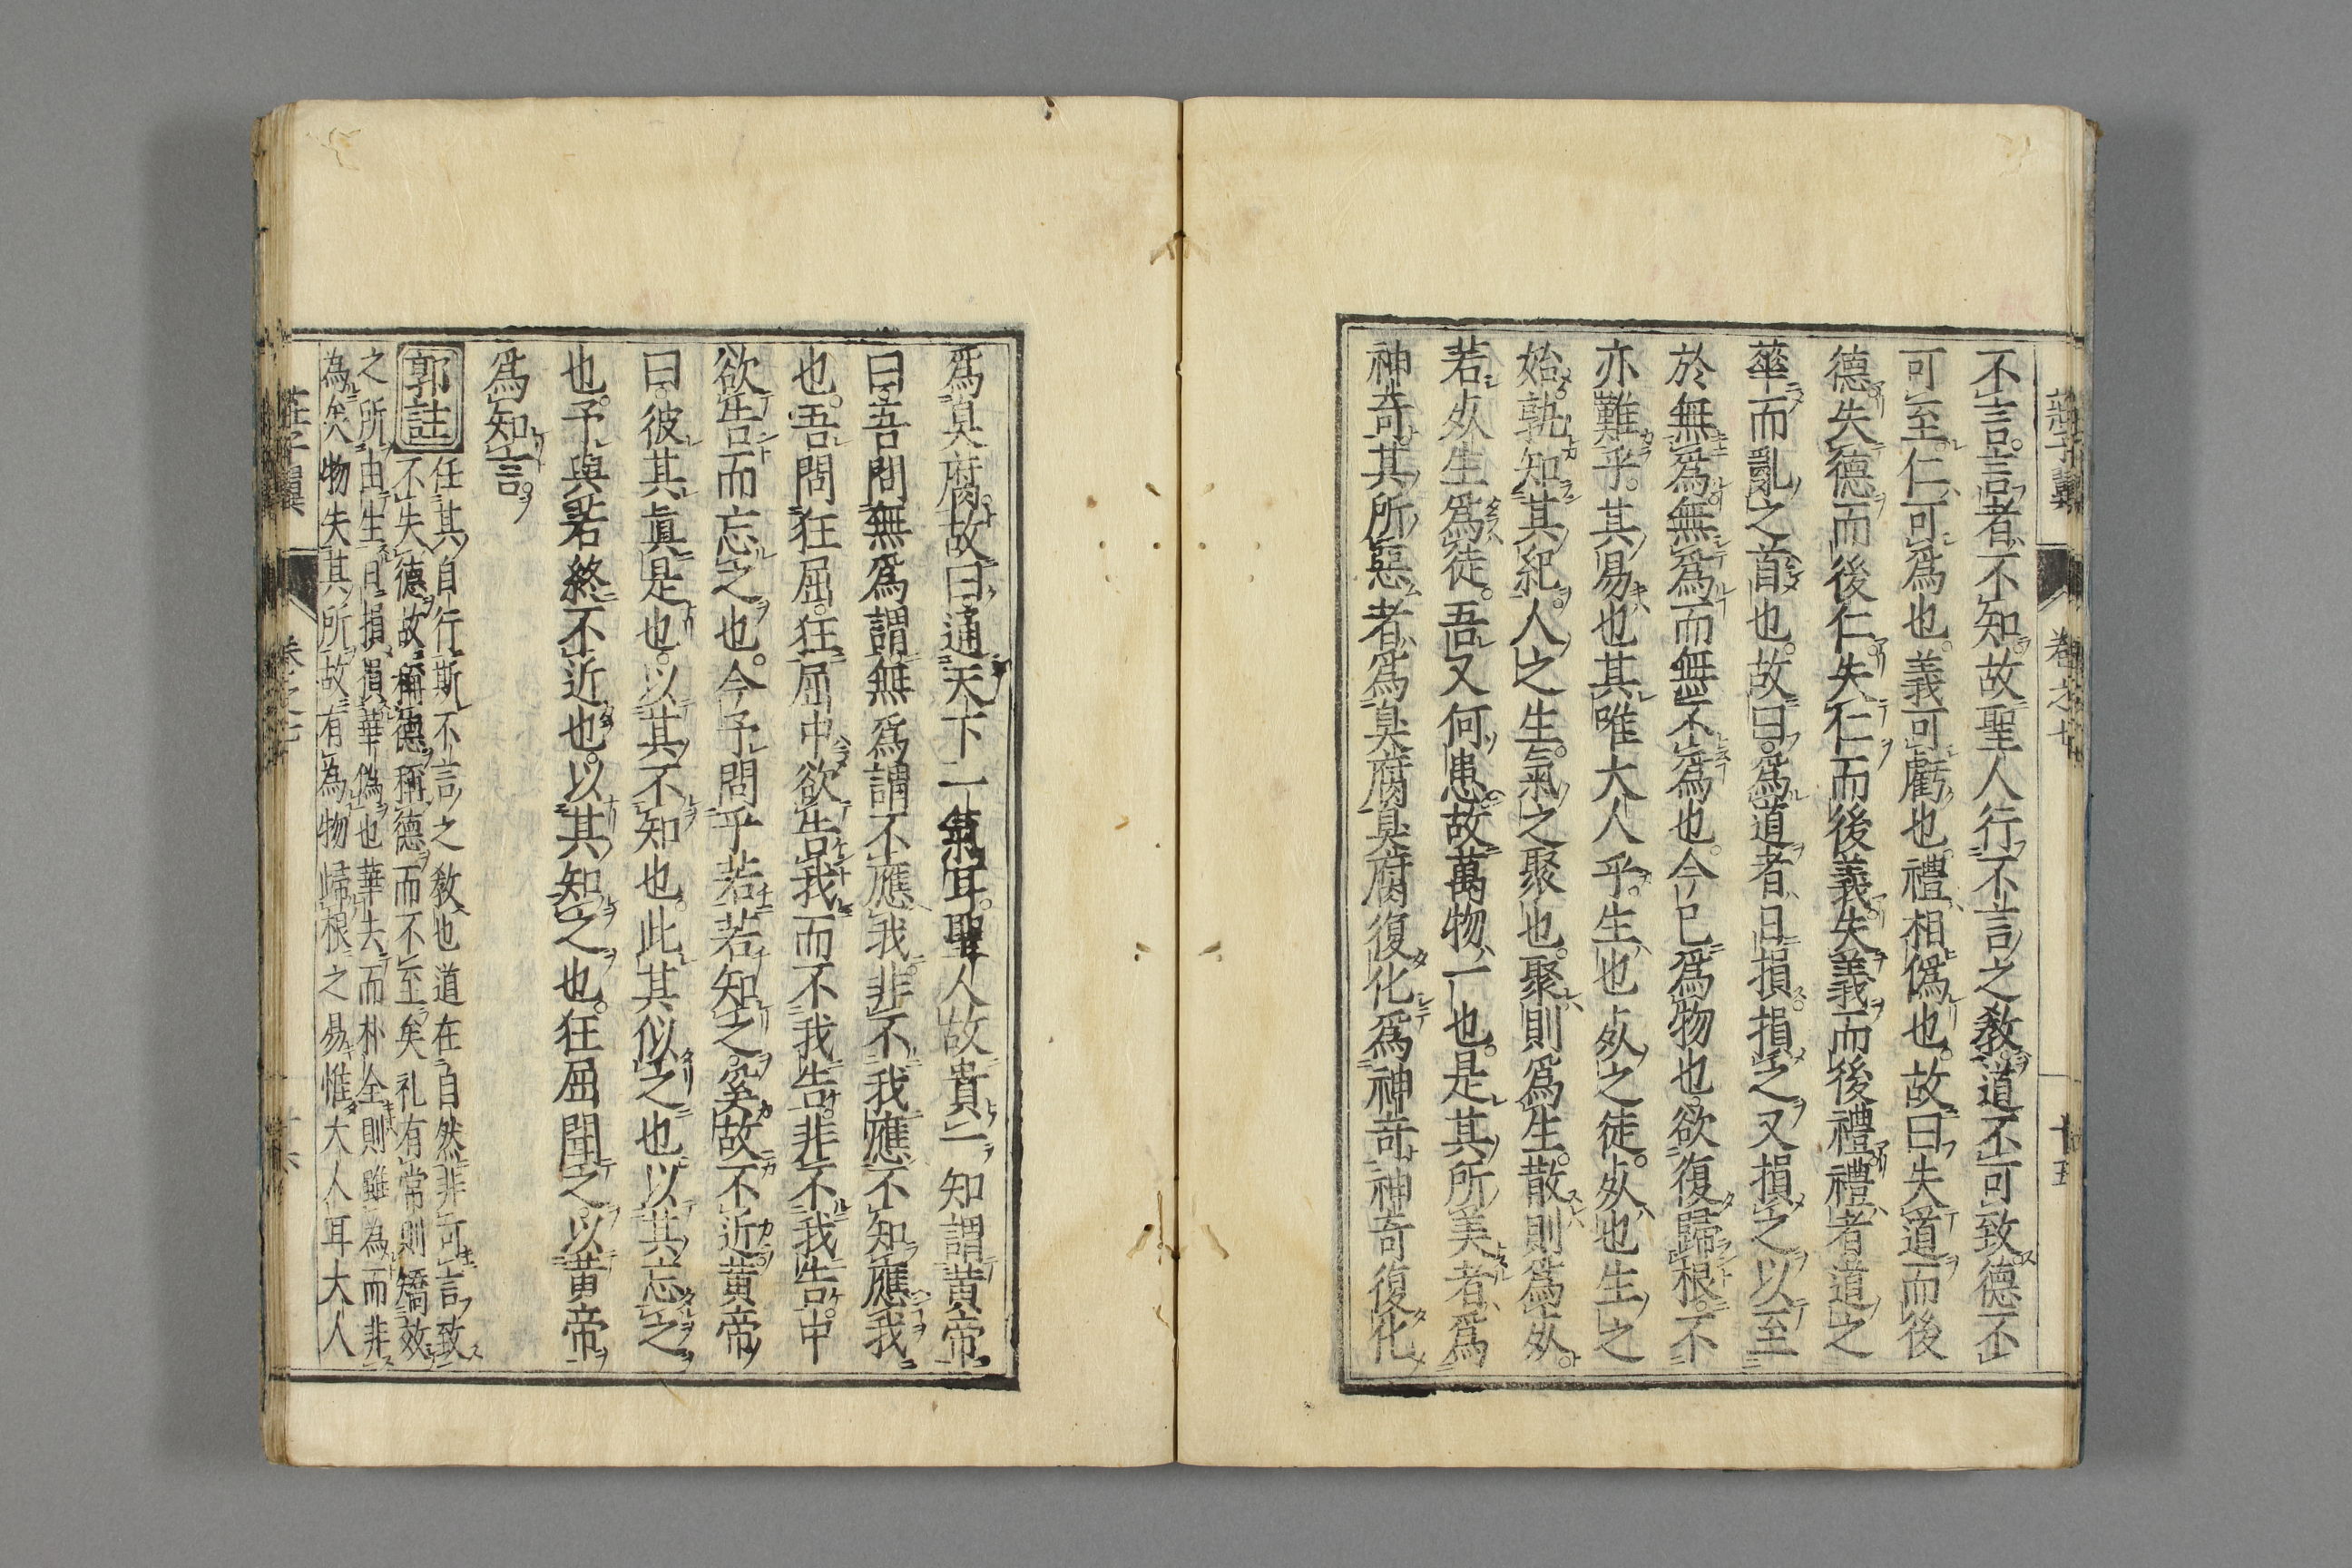 莊子翼 卷之七 十五
不言言者不知故聖人行不言之教道不可致德不
可至仁可爲也義可虧也禮相僞也故曰失道而後
德失德而後仁失仁而後義失義而後禮禮者道之
華而亂之首也故曰爲道者日損損之又損之以至
於無爲無爲而無不爲也今已爲物也欲復歸根不
亦難乎其易也其唯大人乎生也死之徒死也生之
始孰知其紀人之生氣之聚也聚則爲生散則爲死
若死生爲徒吾又何患故萬物一也是其所美者爲
神奇其所惡者爲臭腐臭腐復化爲神奇神奇復化
爲臭腐故曰通天下一氣耳聖人故貴一知謂黃帝
曰吾問無爲謂無爲謂不應我非不我應不知應我
也吾問狂屈狂屈中欲告我而不我告非不我告中
欲告而忘之也今予問乎若若知之奚故不近黃帝
曰彼其眞是也以其不知也此其似之也以其忘之
也予與若終不近也以其知之也狂屈聞之以黃帝
爲知言
郭註
任其自行斯不言之教也道在自然非可言致
不失德故稱德稱德而不至矣礼有常則矯效
之所由生日損損華偽也華去而朴全則雖為而非
為矣物失其所故有為物歸根之易惟大人耳大人
莊子翼 卷之七